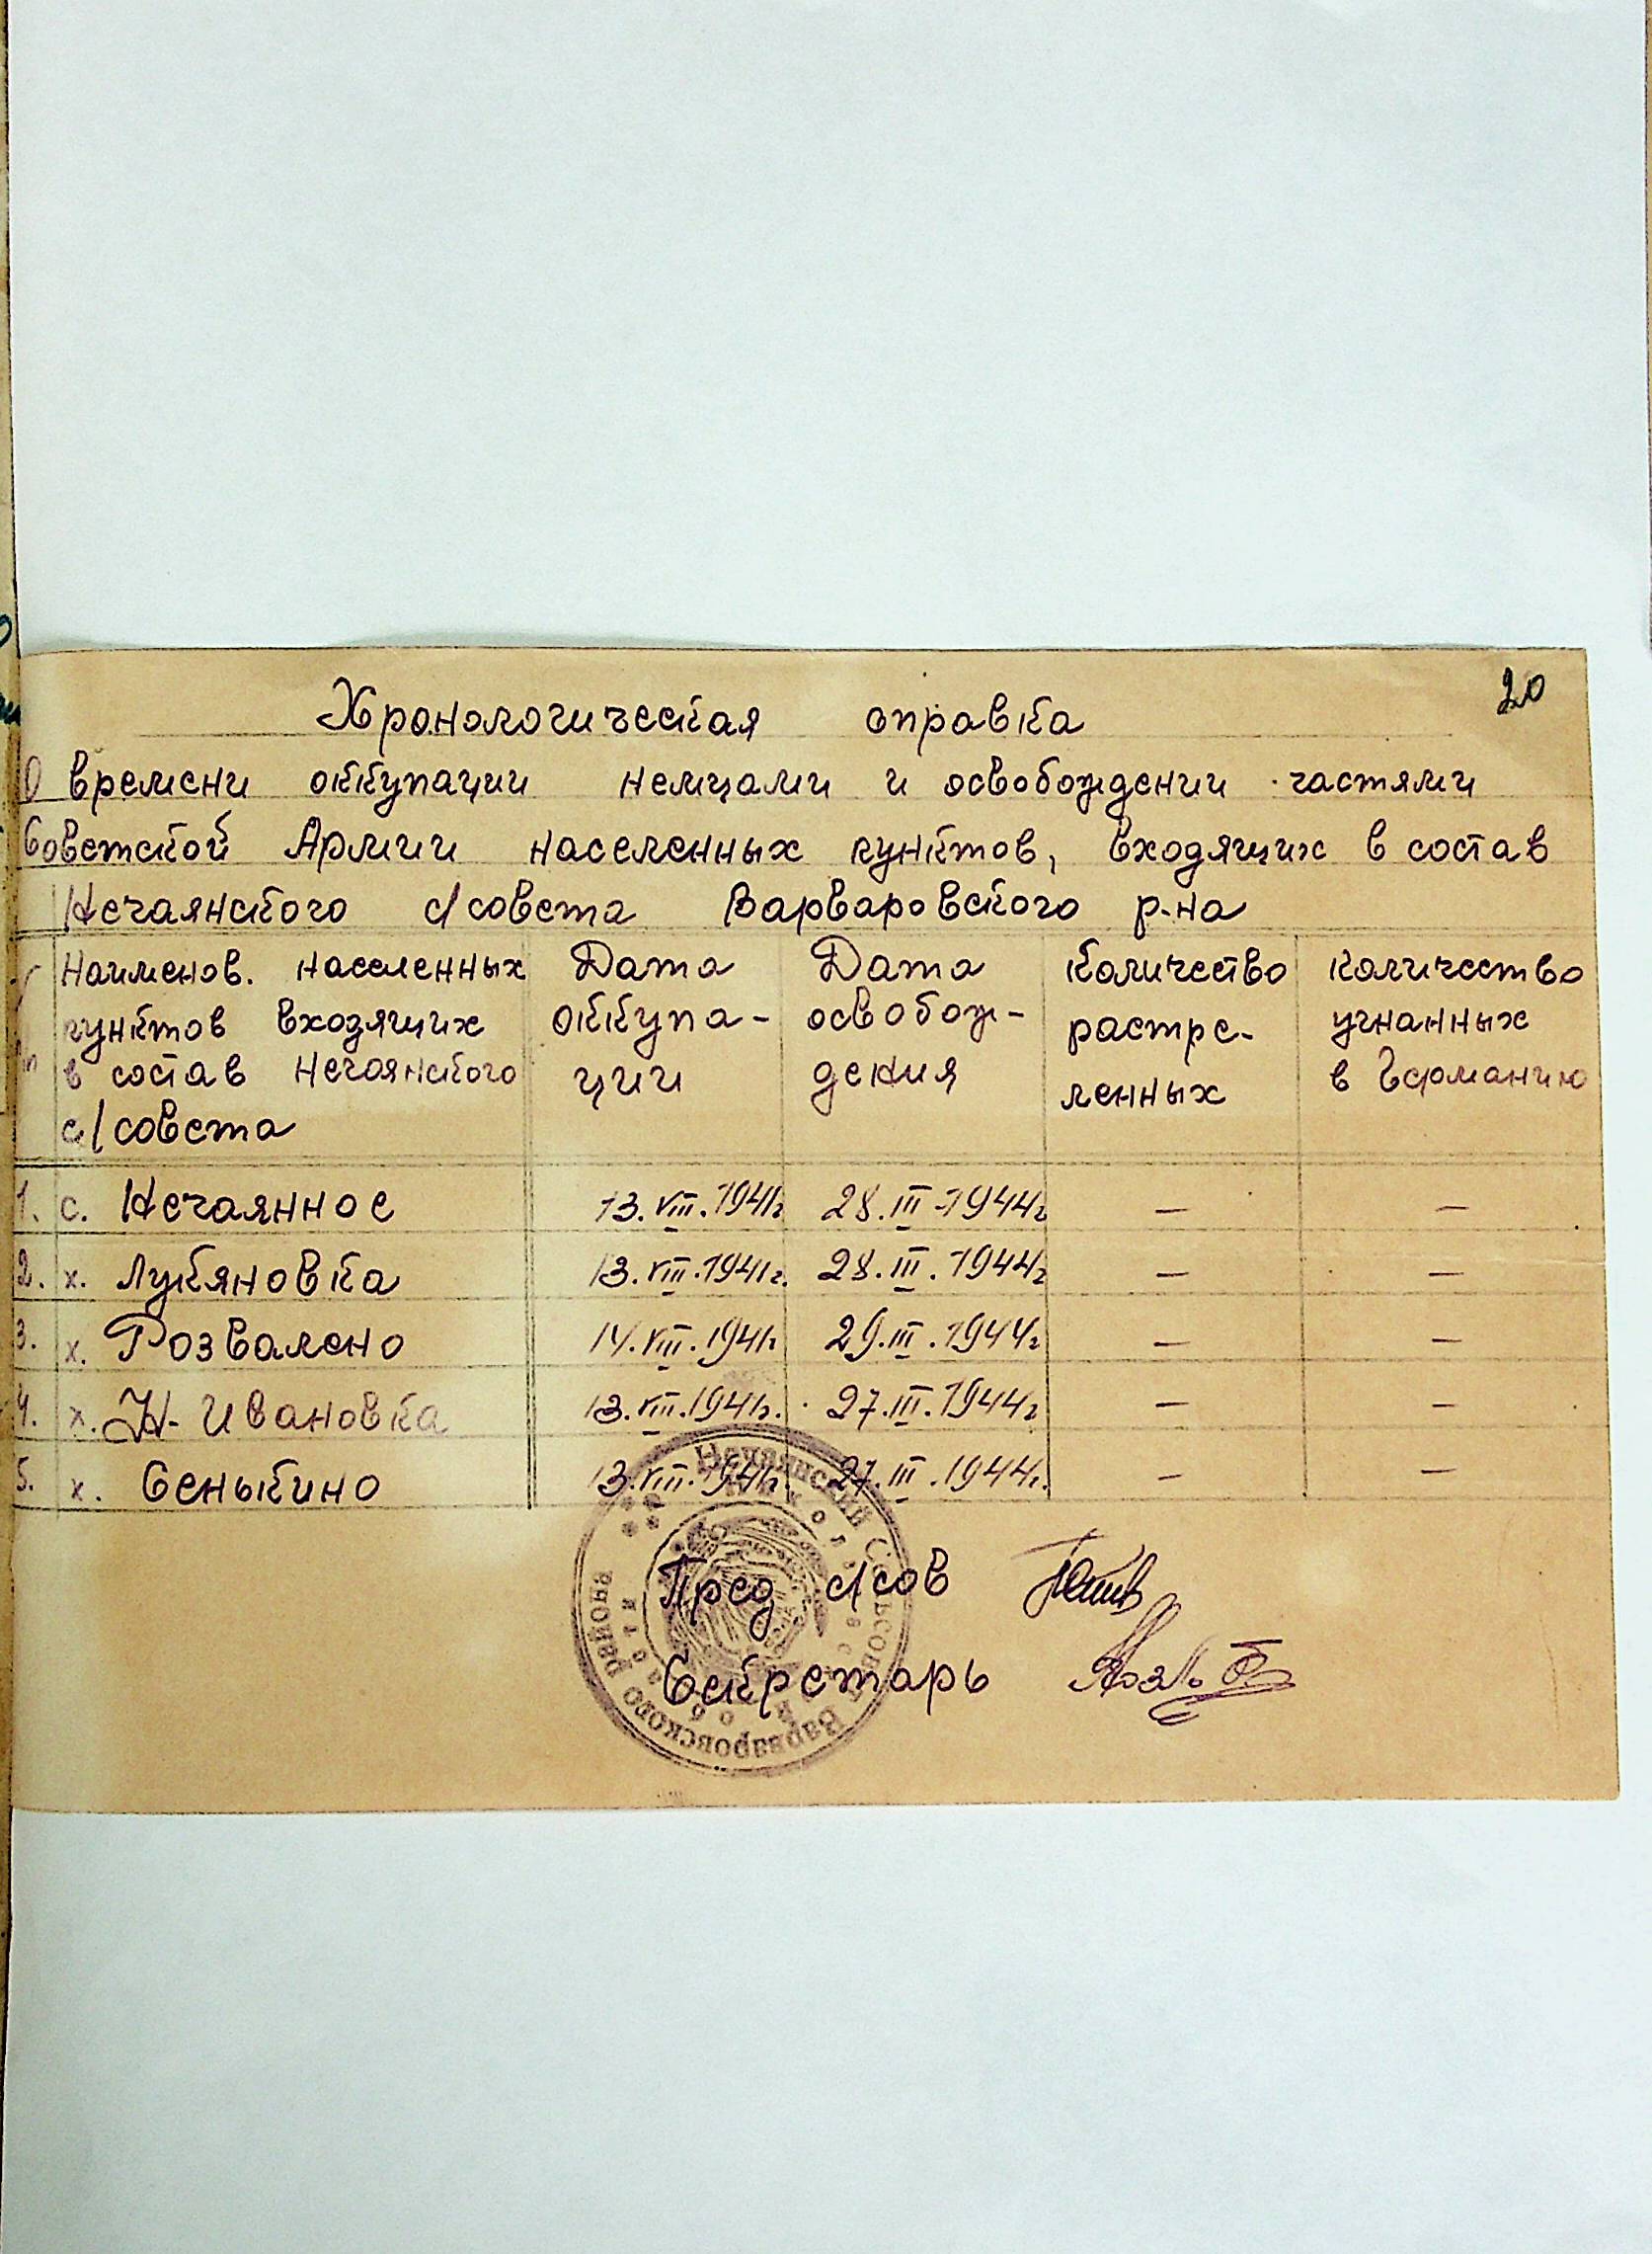 20
Хронологическая справка
О времени оккупации немцами и освобождении частями
Советской Армии населенных пунктов, входящих в состав
Нечаянского с/совета Варваровского р-на
Наименов. населенных пунктов входящих в состав Нечаянского с/совета
Дата оккупа-ции
Дата освобож-дения
Количество растре-ленных
Количество угнанных в Германию
1. с. Нечаянное 13.VIII.1941г 28.III.1944г — —
2. х. Лукяновка 13.VIII.1941г. 28.III.1944г — —
3. х. Розвалено 14.VIII.1941г 29.III.1944г — —
4. х. Н-Ивановка 13.VIII.1941г. 27.III.1944г — —
5. х. Сенькино 13.VIII.1941г 27.III.1944г. — —
Пред с/сов
Секретарь
Нечаянский Сельсовет
Варваровского району